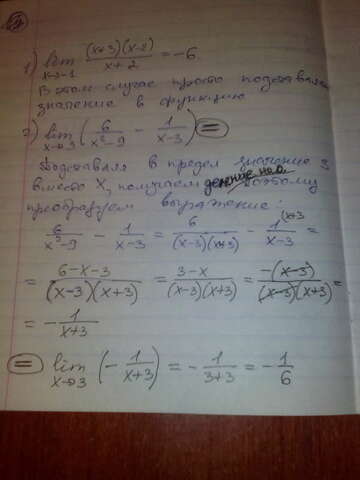 1) lim x→-1 (x+3)(x-2)/(x+2) = -6
В этом случае просто подставля
значение в функцию
2) lim x→3 (6/(x²-9) - 1/(x-3)) =
Подставляя в предел значение 3
вместо X, получаем деление на 0. поэтому
преобразуем выражение:
6/(x²-9) - 1/(x-3) = 6/((x-3)(x+3)) - 1/(x-3) (x+3 =
= (6-x-3)/((x-3)(x+3)) = (3-x)/((x-3)(x+3)) = -(x-3)/((x-3)(x+3)) =
= - 1/(x+3)
= lim x→3 (- 1/(x+3)) = - 1/(3+3) = - 1/6